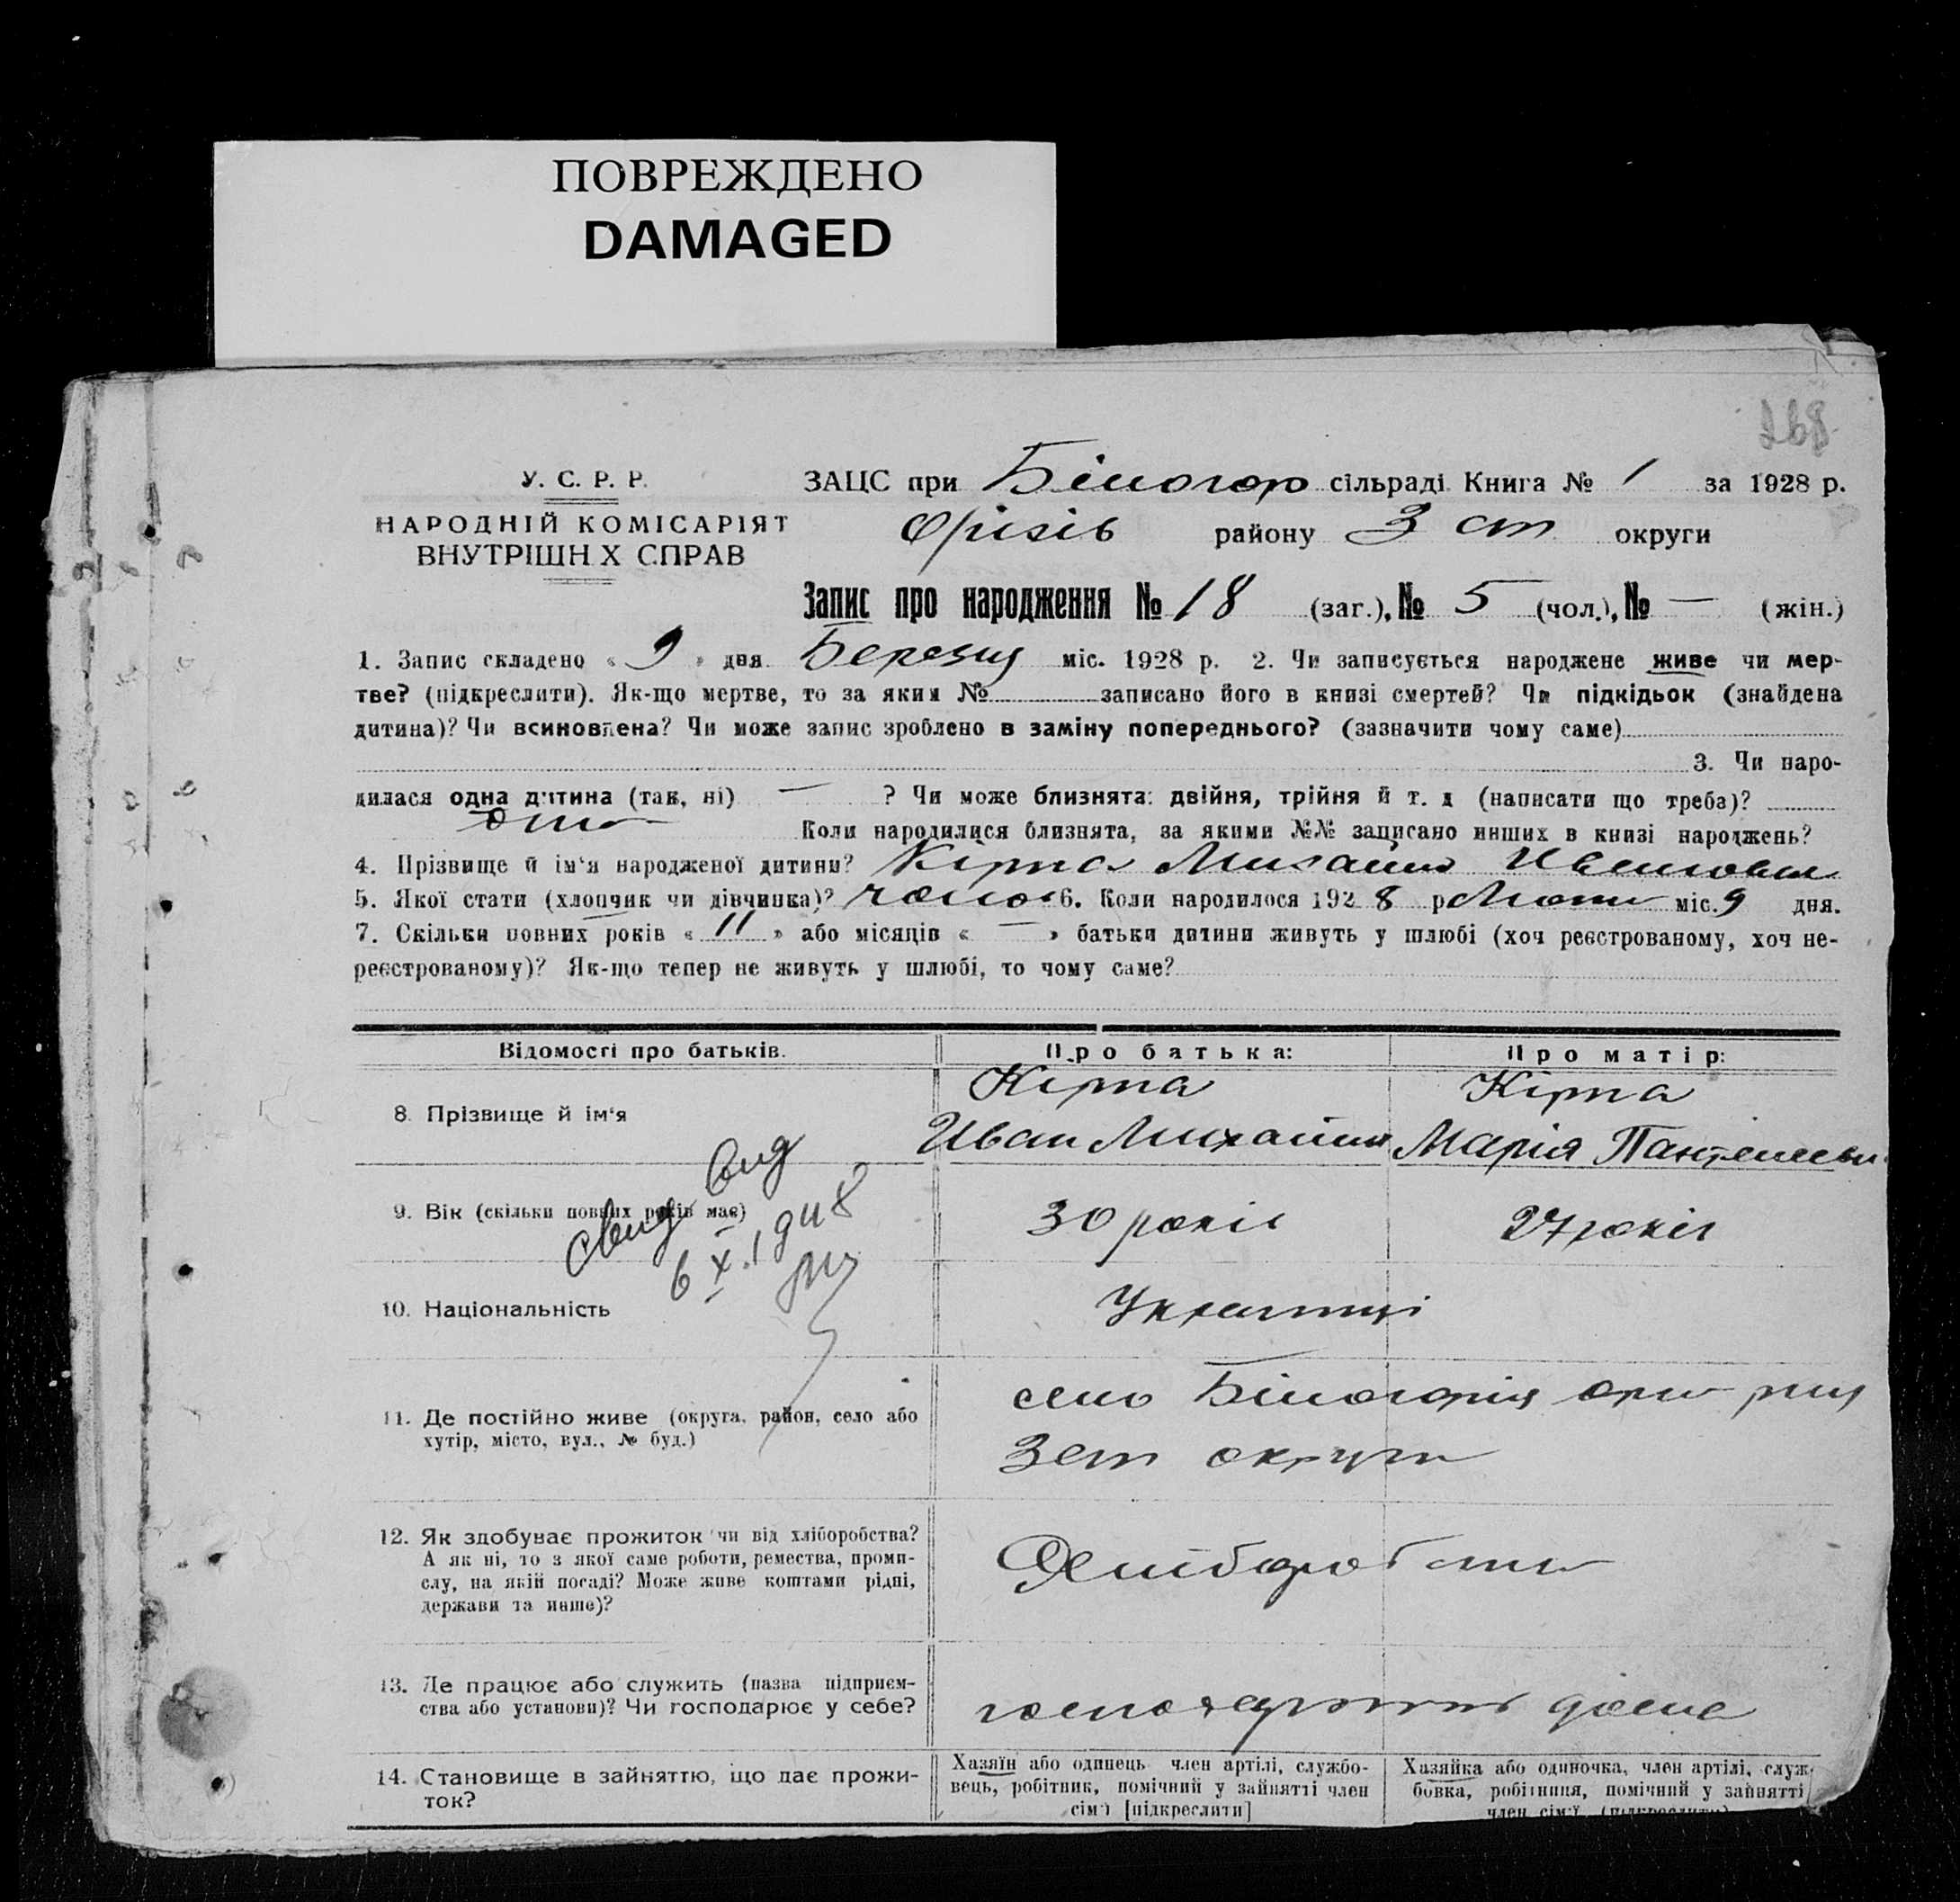 ПОВРЕЖДЕНО
DAMAGED
268
У. С. Р. Р.
НАРОДНІЙ КОМІСАРІЯТ
ВНУТРІШН Х СПРАВ
ЗАЦС при Білогор сільраді Книга № 1 за 1928 р.
Оріхів району З ст округи
Запис про народження № 18 (заг.), № 5 (чол.), № — (жін.)
1. Запис складено « 9 » дня Березня міс. 1928 р. 2. Чи записується народжене живе чи мер-
тве? (підкреслити). Як-що мертве, то за яким № записано його в книзі смертей? Чи підкідьок (знайдена
дитина)? Чи всиновлена? Чи може запис зроблено в заміну попереднього? (зазначити чому саме)
3. Чи наро-
дилася одна дитина (так, ні) — ? Чи може близнята: двійня, трійня й т. д (написати що треба)?
Коли народилися близнята, за якими №№ записано инших в книзі народжень?
4. Прізвище й ім'я народженої дитини? Кірпа Михайло Иванович
5. Якої стати (хлопчик чи дівчинка)? чолов 6. Коли народилося 1928 р. міс. 9 дня.
7. Скільки повних років « 11 » або місяців « — » батьки дитини живуть у шлюбі (хоч реєстрованому, хоч не-
реєстрованому)? Як-що тепер не живуть у шлюбі, то чому саме?
Відомості про батьків. Про батька: Про матір:
8. Прізвище й ім'я Кірпа Кірпа
Иван Михайлов Марія Пантелеевн
9. Вік (скільки повних років має) 30 років 27 років
свид выд
6 X. 1948
10. Національність Українці
11. Де постійно живе (округа, район, село або
хутір, місто, вул., № буд.)
село Білогорія рну
Зап округи
12. Як здобуває прожиток чи від хліборобства?
А як ні, то з якої саме роботи, ремества, проми-
слу, на якій посаді? Може живе коштами рідні,
держави та инше)?
Хліборобство
13. Де працює або служить (назва підприєм-
ства або установи)? Чи господарює у себе?
дома
14. Становище в зайняттю, що дає прожи-
ток?
Хазяїн або одинець член артілі, службо-
вець, робітник, помічний у зайнятті член
сім'ї [підкреслити]
Хазяйка або одиночка, член артілі, служ-
бовка, робітниця, помічний у зайнятті
член сім'ї (підкреслити)